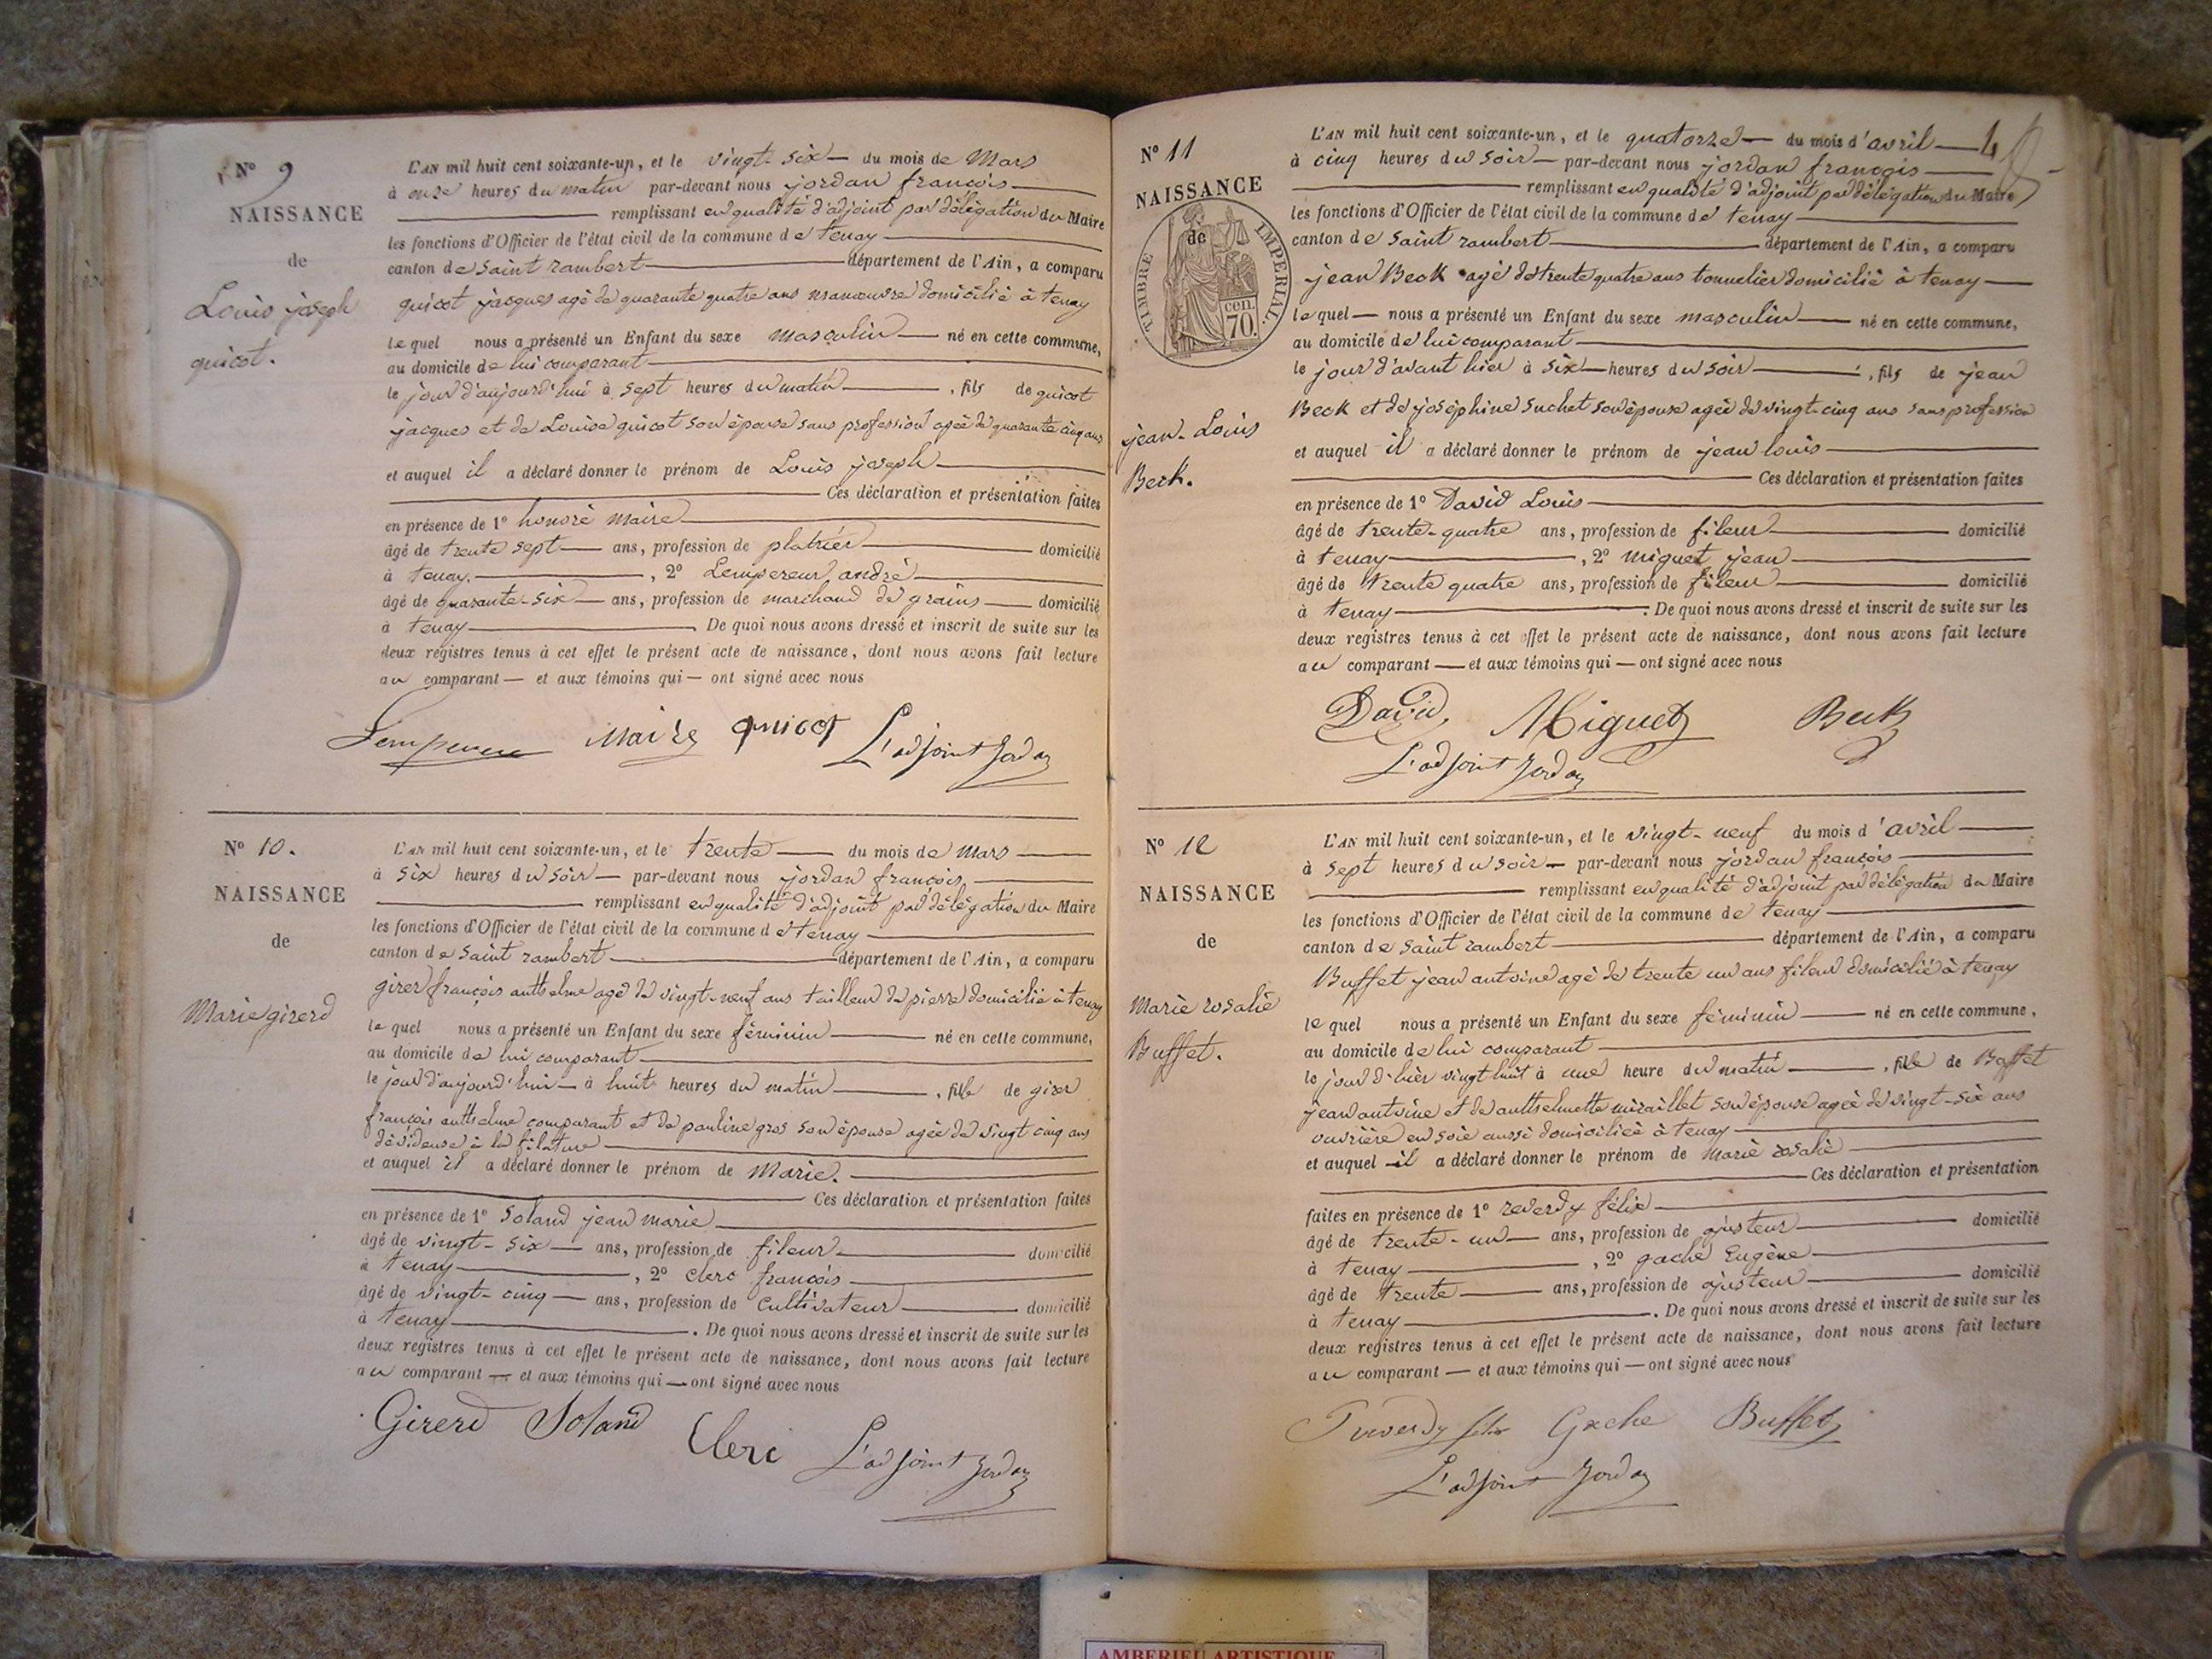 N° 9
NAISSANCE
de
Louis joseph
quicot.
L'AN mil huit cent soixante-un, et le vingt-six — du mois de Mars
à onze heures du matin par-devant nous jordan françois
remplissant en qualité d'adjoint par délégation du Maire
les fonctions d'Officier de l'état civil de la commune de tenay
canton de saint rambert — département de l'Ain, a comparu
quicot jacques agé de quarante quatre ans manoeuvre domicilié à tenay
lequel nous a présenté un Enfant du sexe masculin — né en cette commune,
au domicile de lui comparant
le jour d'aujourd'hui à sept heures du matin — , fils de quicot
jacques et de Louise quicot son épouse sans profession agée de quarante cinq ans
et auquel il a déclaré donner le prénom de Louis joseph
Ces déclaration et présentation faites
en présence de 1° honoré maire
âgé de trente sept — ans, profession de platrier — domicilié
à tenay. — , 2° Lempereur andré
âgé de quarante-six — ans, profession de marchand de grains — domicilié
à tenay — . De quoi nous avons dressé et inscrit de suite sur les
deux registres tenus à cet effet le présent acte de naissance, dont nous avons fait lecture
au comparant — et aux témoins qui — ont signé avec nous
Lempereur Maire quicot L'adjoint Jordan
N° 10.
NAISSANCE
de
Marie girerd
L'AN mil huit cent soixante-un, et le trente — du mois de Mars
à six heures du soir — par-devant nous jordan françois,
remplissant en qualité d'adjoint par délégation du Maire
les fonctions d'Officier de l'état civil de la commune de tenay
canton de saint rambert — département de l'Ain, a comparu
girer françois anthelme agé de vingt-neuf ans tailleur de pierre domicilié à tenay
lequel nous a présenté un Enfant du sexe féminin — né en cette commune,
au domicile de lui comparant
le jour d'aujourd'hui — à huit heures du matin — , fille de girer
françois anthelme comparant et de pauline gros son épouse agée de vingt cinq ans
dévideuse à la filature
et auquel il a déclaré donner le prénom de Marie.
Ces déclaration et présentation faites
en présence de 1° Soland jean marie
âgé de vingt-six — ans, profession de fileur — domicilié
à tenay — , 2° clerc françois
âgé de vingt-cinq — ans, profession de cultivateur — domicilié
à tenay — . De quoi nous avons dressé et inscrit de suite sur les
deux registres tenus à cet effet le présent acte de naissance, dont nous avons fait lecture
au comparant — et aux témoins qui — ont signé avec nous
Girerd Soland Clerc L'adjoint Jordan
N° 11
NAISSANCE
de
TIMBRE IMPERIAL.
70 cen.
jean-Louis
Beck.
L'AN mil huit cent soixante-un, et le quatorze — du mois d'avril — 4
à cinq heures du soir — par-devant nous jordan françois
remplissant en qualité d'adjoint par délégation du Maire
les fonctions d'Officier de l'état civil de la commune de tenay
canton de saint rambert — département de l'Ain, a comparu
jean Beck agé de trente quatre ans tonnelier domicilié à tenay
lequel — nous a présenté un Enfant du sexe masculin — né en cette commune,
au domicile de lui comparant
le jour d'avant hier à six — heures du soir — , fils de jean
Beck et de joséphine Suchet son épouse agée de vingt-cinq ans sans profession
et auquel il a déclaré donner le prénom de jean louis
Ces déclaration et présentation faites
en présence de 1° David Louis
âgé de trente-quatre ans, profession de fileur — domicilié
à tenay — , 2° miguet jean
âgé de trente quatre ans, profession de fileur — domicilié
à tenay — . De quoi nous avons dressé et inscrit de suite sur les
deux registres tenus à cet effet le présent acte de naissance, dont nous avons fait lecture
au comparant — et aux témoins qui — ont signé avec nous
David, Miguet Beck
L'adjoint Jordan
N° 12
NAISSANCE
de
Marie rosalie
Buffet.
L'AN mil huit cent soixante-un, et le vingt-neuf du mois d'avril
à sept heures du soir — par-devant nous jordan françois
remplissant en qualité d'adjoint par délégation du Maire
les fonctions d'Officier de l'état civil de la commune de tenay
canton de saint rambert — département de l'Ain, a comparu
Buffet jean antoine agé de trente un ans fileur domicilié à tenay
lequel nous a présenté un Enfant du sexe féminin — né en cette commune,
au domicile de lui comparant
le jour d'hier vingt huit à une heure du matin — , fille de Buffet
jean antoine et de anthelmette miraillet son épouse agée de vingt-six ans
ouvrière en soie aussi domiciliée à tenay
et auquel il a déclaré donner le prénom de marie rosalie
Ces déclaration et présentation
faites en présence de 1° reverdy félix
âgé de trente-un — ans, profession de ajusteur — domicilié
à tenay — , 2° gache Eugène
âgé de trente — ans, profession de ajusteur — domicilié
à tenay — . De quoi nous avons dressé et inscrit de suite sur les
deux registres tenus à cet effet le présent acte de naissance, dont nous avons fait lecture
au comparant — et aux témoins qui — ont signé avec nous
Gache Buffet
L'adjoint Jordan
AMBERIEU ARTISTIQUE